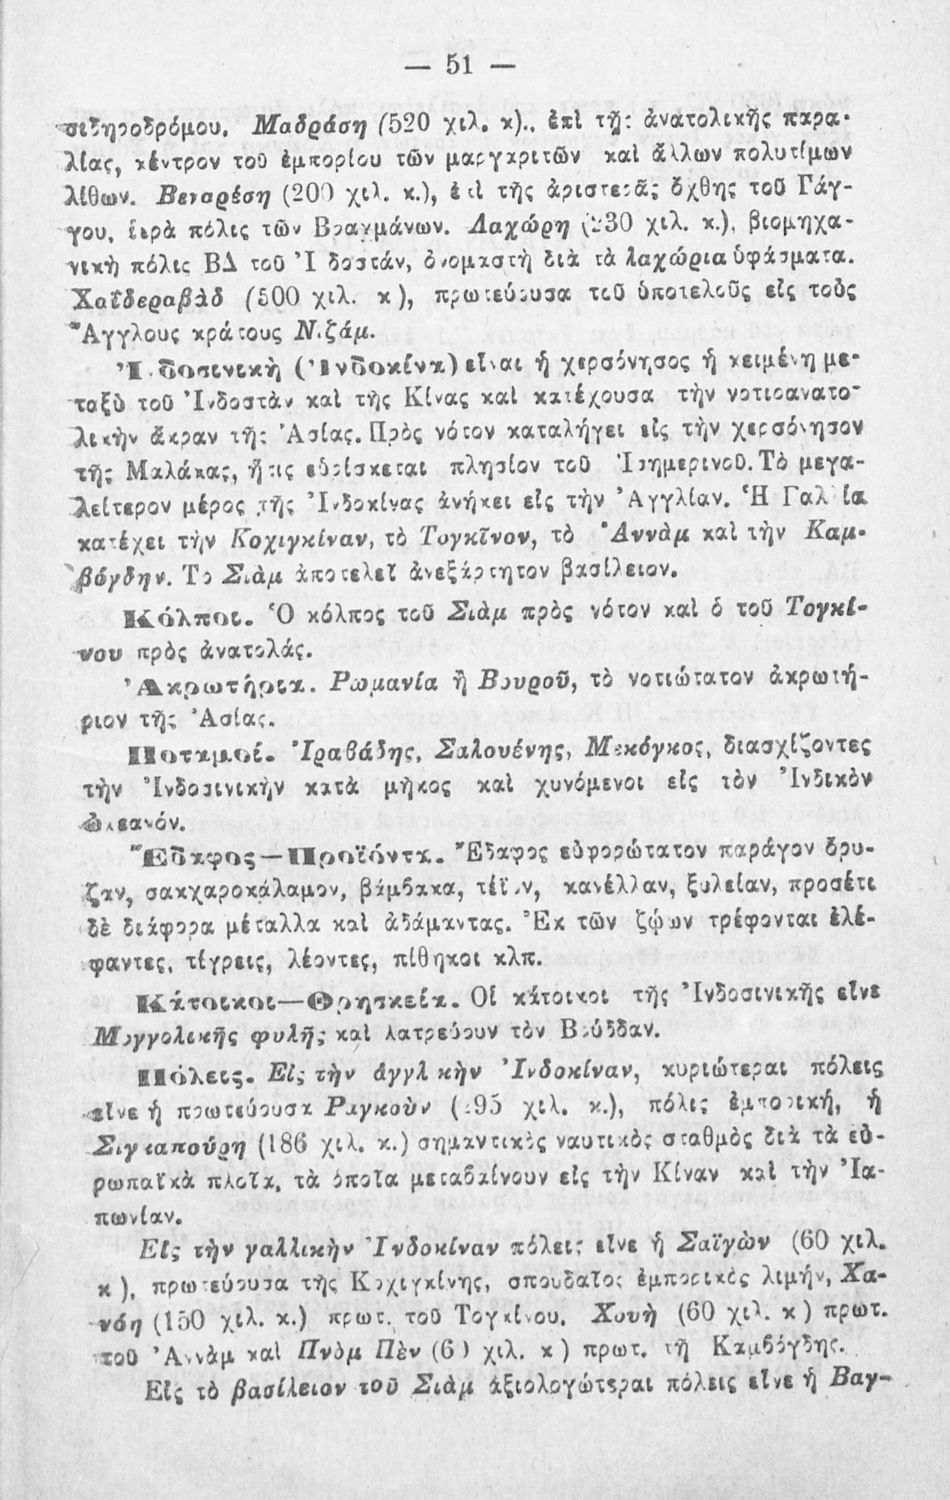 — 51 —
σιδηροδρόμου. Μαδράση (520 χιλ. κ)., ἐπὶ τῆς ἀνατολικῆς παρα-
λίας, κέντρον τοῦ ἐμπορίου τῶν μαργαριτῶν καὶ ἄλλων πολυτίμων
λίθων. Βεναρέση (200 χιλ. κ.), ἐπὶ τῆς ἀριστερᾶς ὄχθης τοῦ Γάγ-
γου, ἱερὰ πόλις τῶν Βραχμάνων. Λαχώρη (230 χιλ. κ.), βιομηχα-
νικὴ πόλις ΒΔ τοῦ Ἰνδοστάν, ὀνομαστὴ διὰ τὰ λαχώρια ὑφάσματα.
Χαϊδεραβὰδ (500 χιλ. κ), πρωτεύουσα τοῦ ὑποτελοῦς εἰς τοὺς
Ἄγγλους κράτους Νιζάμ.
Ἰνδοσινικὴ (Ἰνδοκίνα) εἶναι ἡ χερσόνησος ἡ κειμένη με-
ταξὺ τοῦ Ἰνδοστὰν καὶ τῆς Κίνας καὶ κατέχουσα τὴν νοτιοανατο-
λικὴν ἄκραν τῆς Ἀσίας. Πρὸς νότον καταλήγει εἰς τὴν χερσόνησον
τῆς Μαλάκας, ἥτις εὑρίσκεται πλησίον τοῦ Ἰσημερινοῦ. Τὸ μεγα-
λείτερον μέρος τῆς Ἰνδοκίνας ἀνήκει εἰς τὴν Ἀγγλίαν. Ἡ Γαλλία
κατέχει τὴν Κοχιγκίναν, τὸ Τογκῖνον, τὸ Ἀννὰμ καὶ τὴν Καμ-
βόγδην. Τὸ Σιὰμ ἀποτελεῖ ἀνεξάρτητον βασίλειον.
Κόλποι. Ὁ κόλπος τοῦ Σιὰμ πρὸς νότον καὶ ὁ τοῦ Τογκί-
νου πρὸς ἀνατολάς.
Ἀκρωτήρια. Ρωμανία ἢ Βουροῦ, τὸ νοτιώτατον ἀκρωτή-
ριον τῆς Ἀσίας.
Ποταμοί. Ἰραβάδης, Σαλουένης, Μεκόγκος, διασχίζοντες
τὴν Ἰνδοσινικὴν κατὰ μῆκος καὶ χυνόμενοι εἰς τὸν Ἰνδικὸν
Ὠκεανόν.
Ἔδαφος — Προϊόντα. Ἔδαφος εὐφορώτατον παράγον ὄρυ-
ζαν, σακχαροκάλαμον, βάμβακα, τέϊον, κανέλλαν, ξυλείαν, προσέτι
δὲ διάφορα μέταλλα καὶ ἀδάμαντας. Ἐκ τῶν ζῴων τρέφονται ἐλέ-
φαντες, τίγρεις, λέοντες, πίθηκοι κλπ.
Κάτοικοι—Θρησκεία. Οἱ κάτοικοι τῆς Ἰνδοσινικῆς εἶνε
Μογγολικῆς φυλῆς καὶ λατρεύουν τὸν Βούδδαν.
Πόλεις. Εἰς τὴν ἀγγλικὴν Ἰνδοκίναν, κυριώτεραι πόλεις
εἶνε ἡ πρωτεύουσα Ραγκοὺν ( 95 χιλ. κ.), πόλις ἐμπορική, ἡ
Σιγκαπούρη (186 χιλ. κ.) σημαντικὸς ναυτικὸς σταθμὸς διὰ τὰ εὐ-
ρωπαϊκὰ πλοῖα, τὰ ὁποῖα μεταβαίνουν εἰς τὴν Κίναν καὶ τὴν Ἰα-
πωνίαν.
Εἰς τὴν γαλλικὴν Ἰνδοκίναν πόλεις εἶνε ἡ Σαϊγὼν (60 χιλ.
κ), πρωτεύουσα τῆς Κοχιγκίνης, σπουδαῖος ἐμπορικὸς λιμήν, Χα-
νόη (150 χιλ. κ.) πρωτ. τοῦ Τογκίνου. Χουὴ (60 χιλ. κ) πρωτ.
τοῦ Ἀννὰμ καὶ Πνὸμ Πὲν (60 χιλ. κ) πρωτ. τῆς Καμβόγδης.
Εἰς τὸ βασίλειον τοῦ Σιὰμ ἀξιολογώτεραι πόλεις εἶνε ἡ Βαγ-